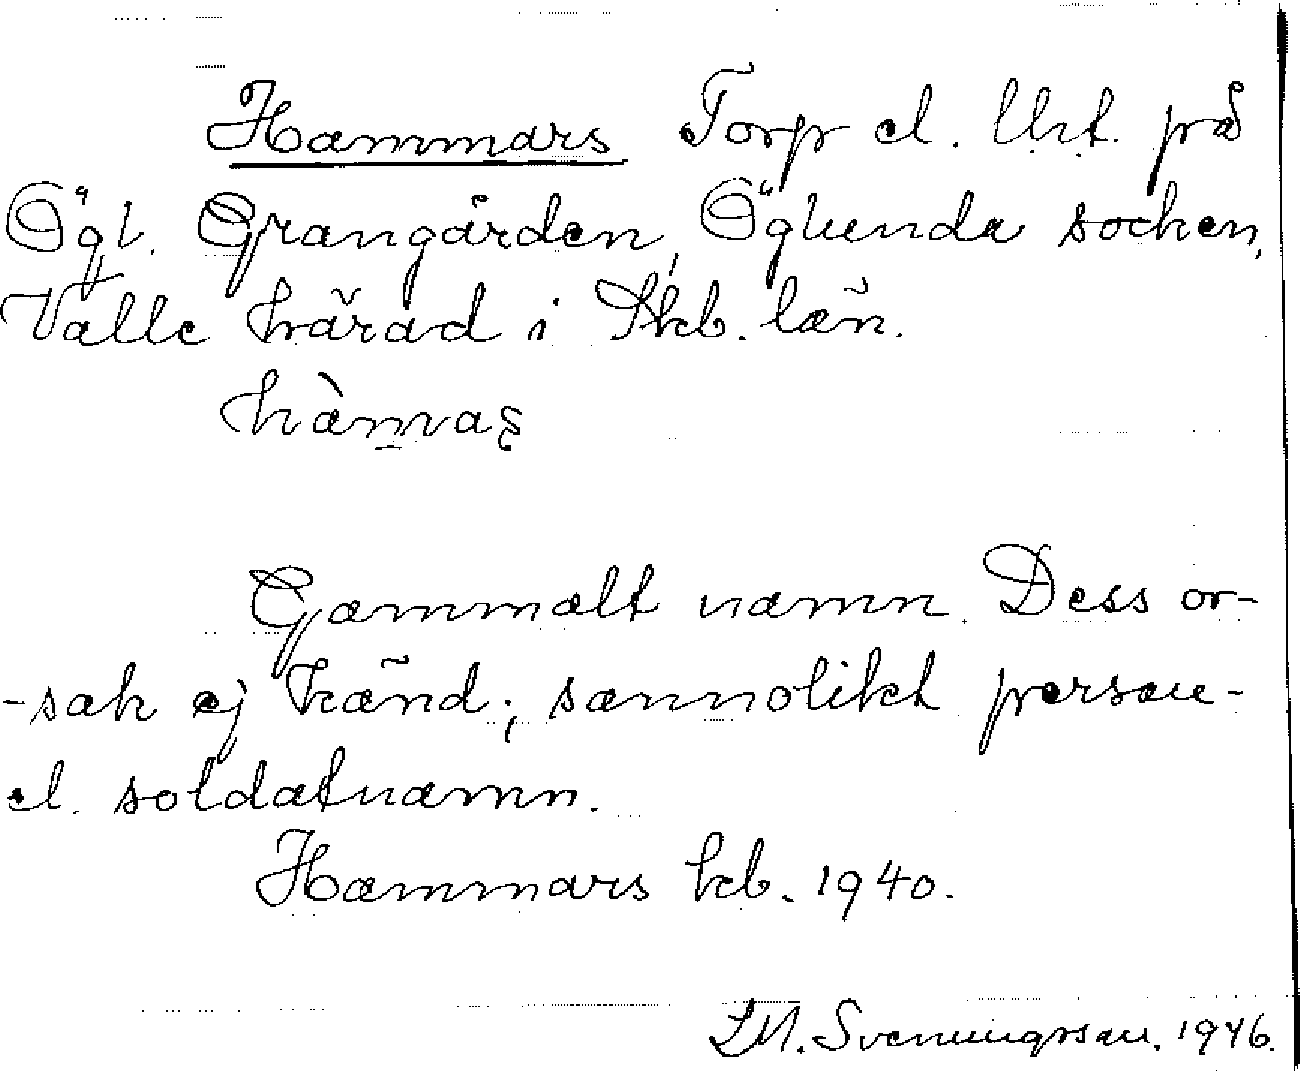 Hammars Torp el. lht. på
Ögt. Grangården, Öglunda socken,
Valle härad i Skb. län.
hàmas
Gammalt namn. Dess or-
-sak ej känd; sannolikt person-
el. soldatnamn.
Hammars kb. 1940.
L.M. Svenningsson. 1946.